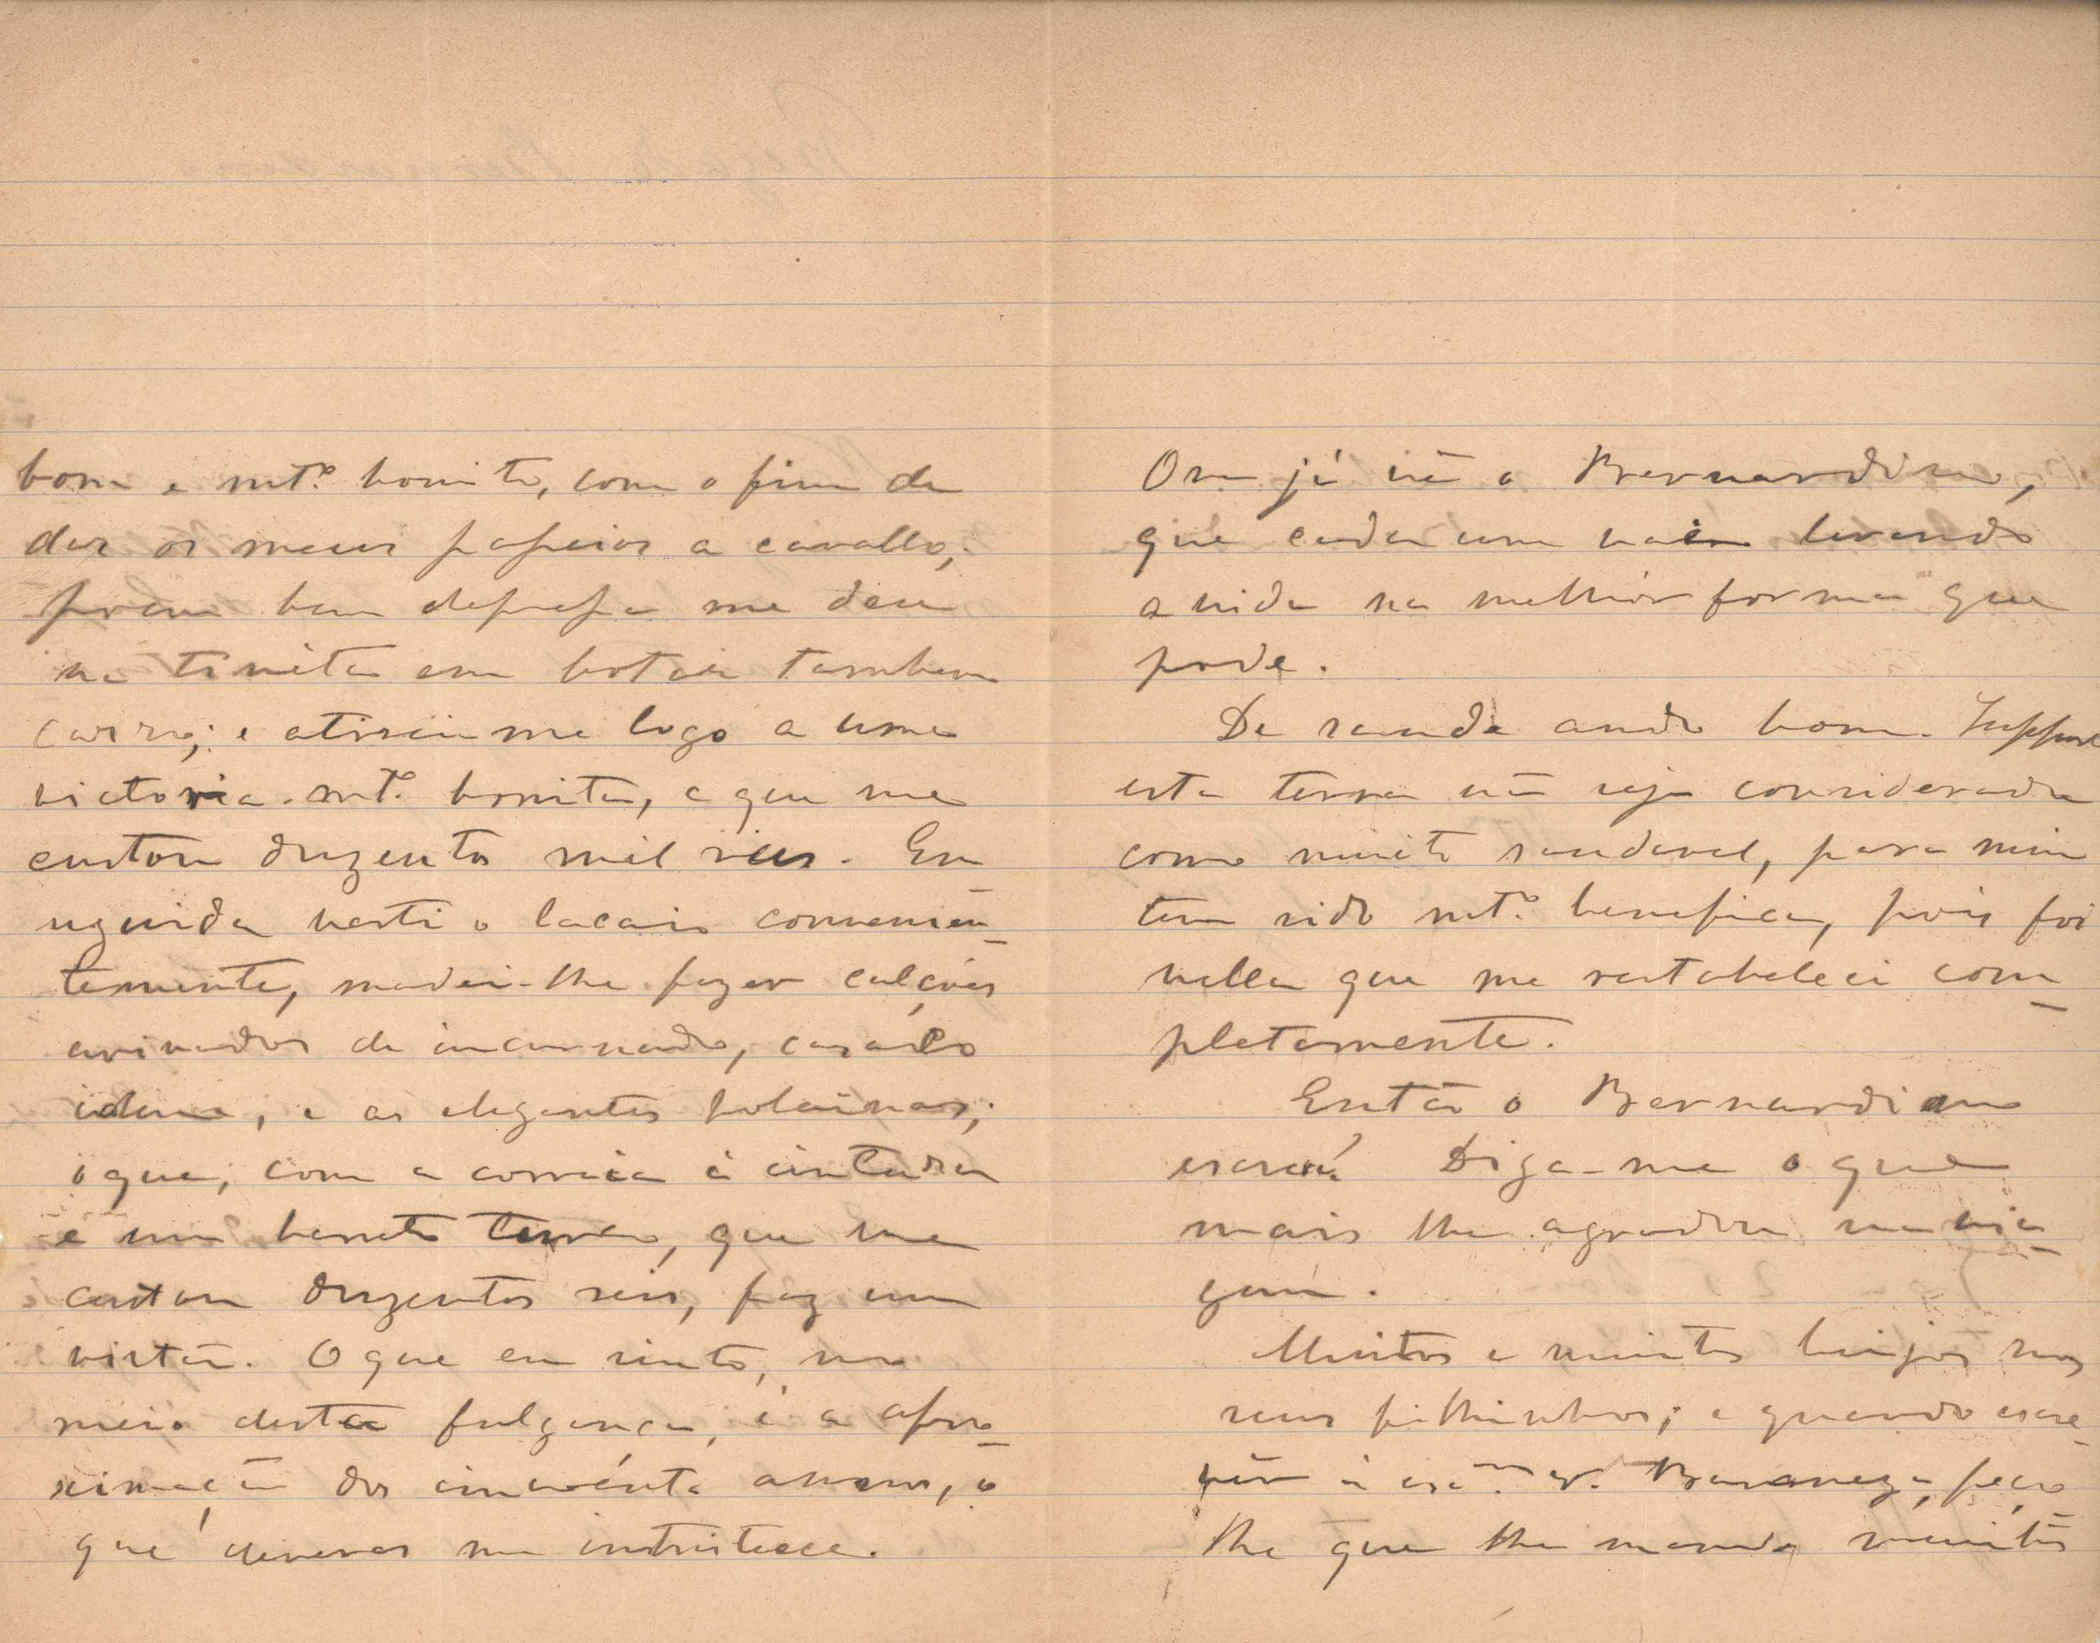 bom e mt.º bonito, com o fim de
dar os meus passeios a cavallo;
porem bem depressa me deu
na tineta em botar tambem
carro; e atirei-me logo a uma
victoria mt.º bonita, e que me
custou duzentos mil reis. Em
seguida vesti o lacaio convenien-
temente, mandei-lhe fazer calções
avivados de incarnado, casaco
idem, e as elegantes polainas;
o que, com a correia á cintura
e um barrete turco, que me
custou duzentos reis, faz um
vistão. O que eu sinto, no
meio desta fulgencia, é a apro-
ximação dos cincoenta annos, o
que deveras me intristece.
Ora já vê o Bernardino,
que cada um vai levando
a vida na melhor forma que
pode.
De saude ando bom. Suppore
esta terra não seja considerada
como muito saudavel, para mim
tem sido mt.º benefica, pois foi
nella que me restabeleci com-
pletamente.
Então o Bernardino
escreva? Diga-me o que
mais lhe agradou na via-
gem.
Muitos e muitos beijos nos
seus filhinhos; e quando escre-
vêr á exc.ma Sr.ª Baroneza, peço
lhe que lhe mande muitos